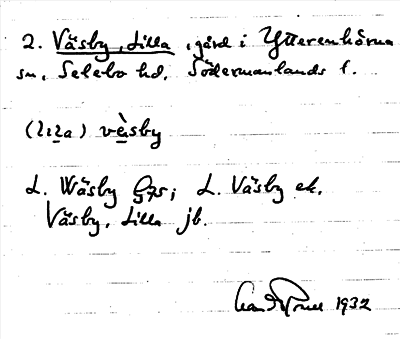 2. Väsby, Lilla, gård i Ytterenhörna
sn, Selebo hd, Södermanlands l.
(lıla) vèsby
L. Wäsby 575; L. Väsby ek.
Väsby, Lilla jb.
1932